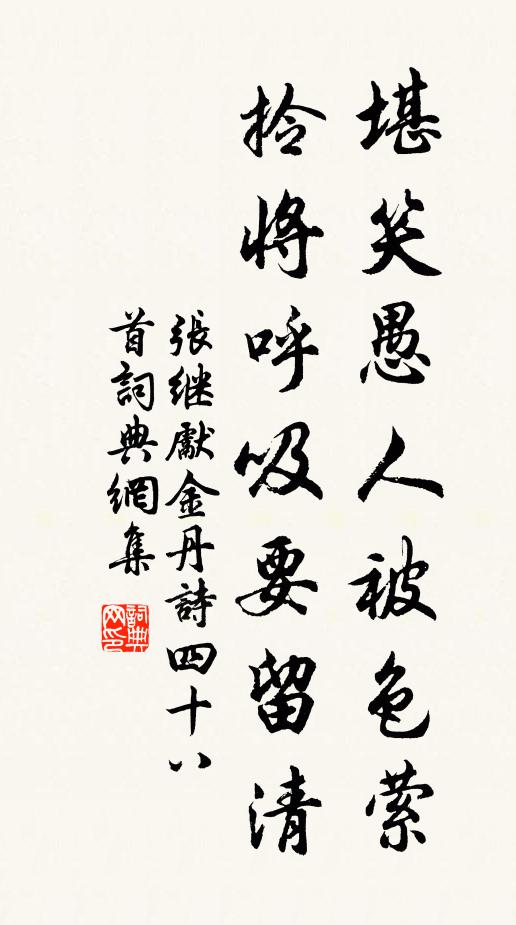 堪笑愚人被色萦
拎将呼吸要留清
張继獻金丹詩四十八
首詞典網集
詞典网印